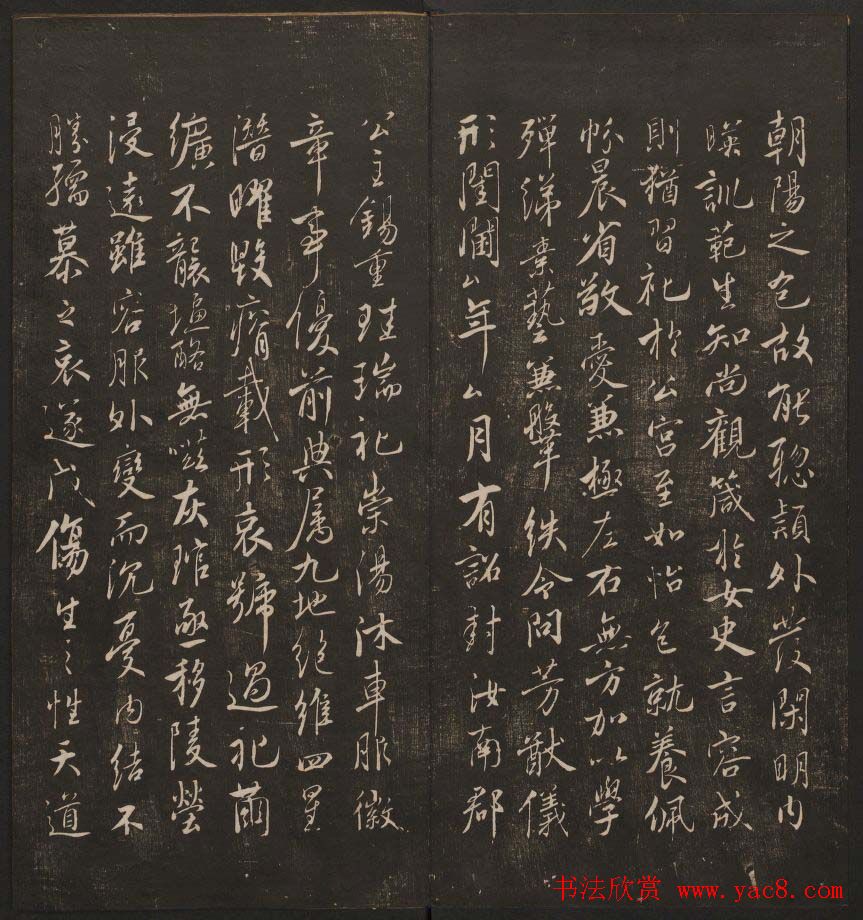 朝陽之色故能聪穎外發閑明内
暎訓範生知尚觀箴於女史言容成
則猶習礼於公宫至如怡色就養佩
帉晨省敬愛兼極左右無方加以學
殫綈素藝兼鞶紩令問芳猷儀
形閨閫厶年厶月有詔封汝南郡
公主錫重珪瑞礼崇湯沐車服徽
章事優前典属九地絶維四星
潛曜毀瘠載形哀號過礼繭
纊不襲塩酪無嗞灰琯亟移陵塋
浸遠雖容服外變而沉憂内结不
勝孺慕之哀遂成傷生之性天道
书法欣赏 www.yac8.com